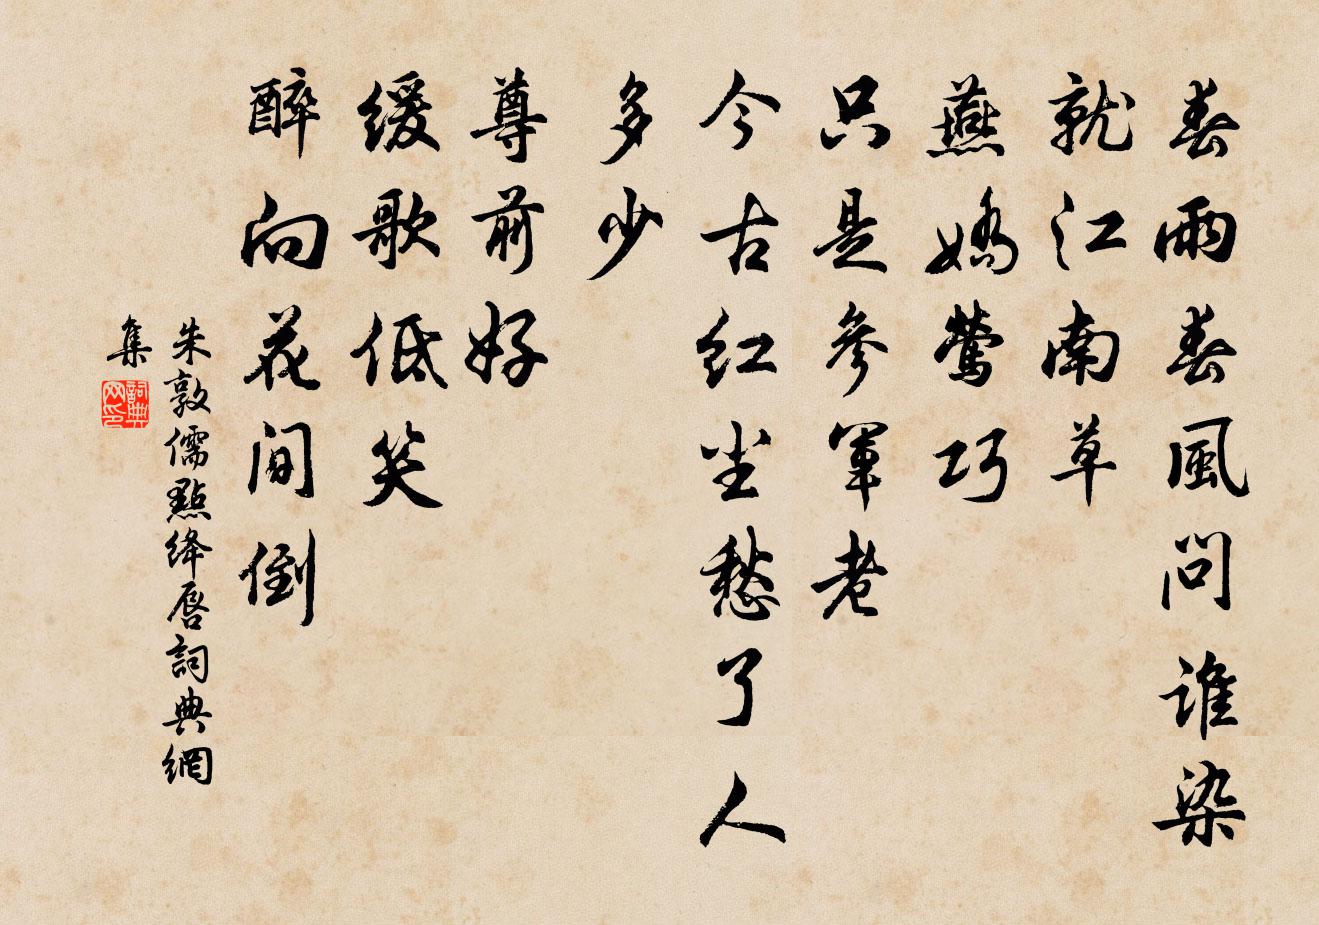 春雨春風問誰染
就江南草
燕嬌鶯巧
只是參軍老
今古红尘愁了人
多少
尊前好
缓歌低笑
醉向花間倒
朱敦儒點绛唇詞典網
集
詞典
网印